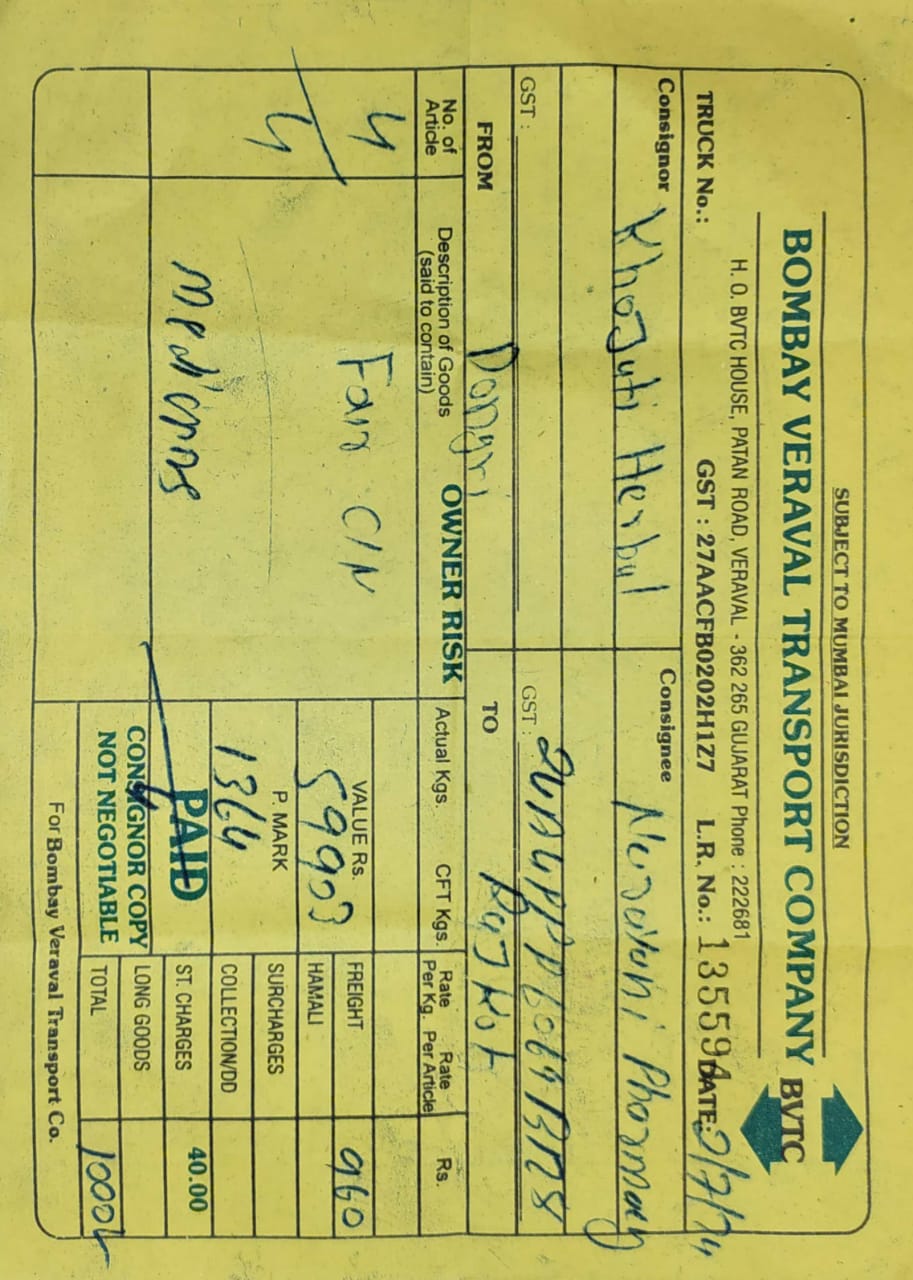 SUBJECT TO MUMBAI JURISDICTION
BOMBAY VERAVAL TRANSPORT COMPANY BVTC
H. O. BVTC HOUSE, PATAN ROAD, VERAVAL - 362 265 GUJARAT Phone : 222681
TRUCK No.: GST : 27AACFB0202H1Z7 L.R. No.: 135594 DATE: 2/7/24
Consignor Khojuti Herbul Consignee Pharmacy
GST : GST :
FROM Dongri TO Rajkot
No. of Article Description of Goods (said to contain) OWNER RISK Actual Kgs. CFT Kgs. Rate Per Kg. Rate Per Article Rs.
4 Fair CIN VALUE Rs. 59903 FREIGHT 960
HAMALI
4 P. MARK 1364 SURCHARGES
COLLECTION/DD
PAID ST. CHARGES 40.00
CONSIGNOR COPY LONG GOODS
NOT NEGOTIABLE TOTAL 1000/-
For Bombay Veraval Transport Co.